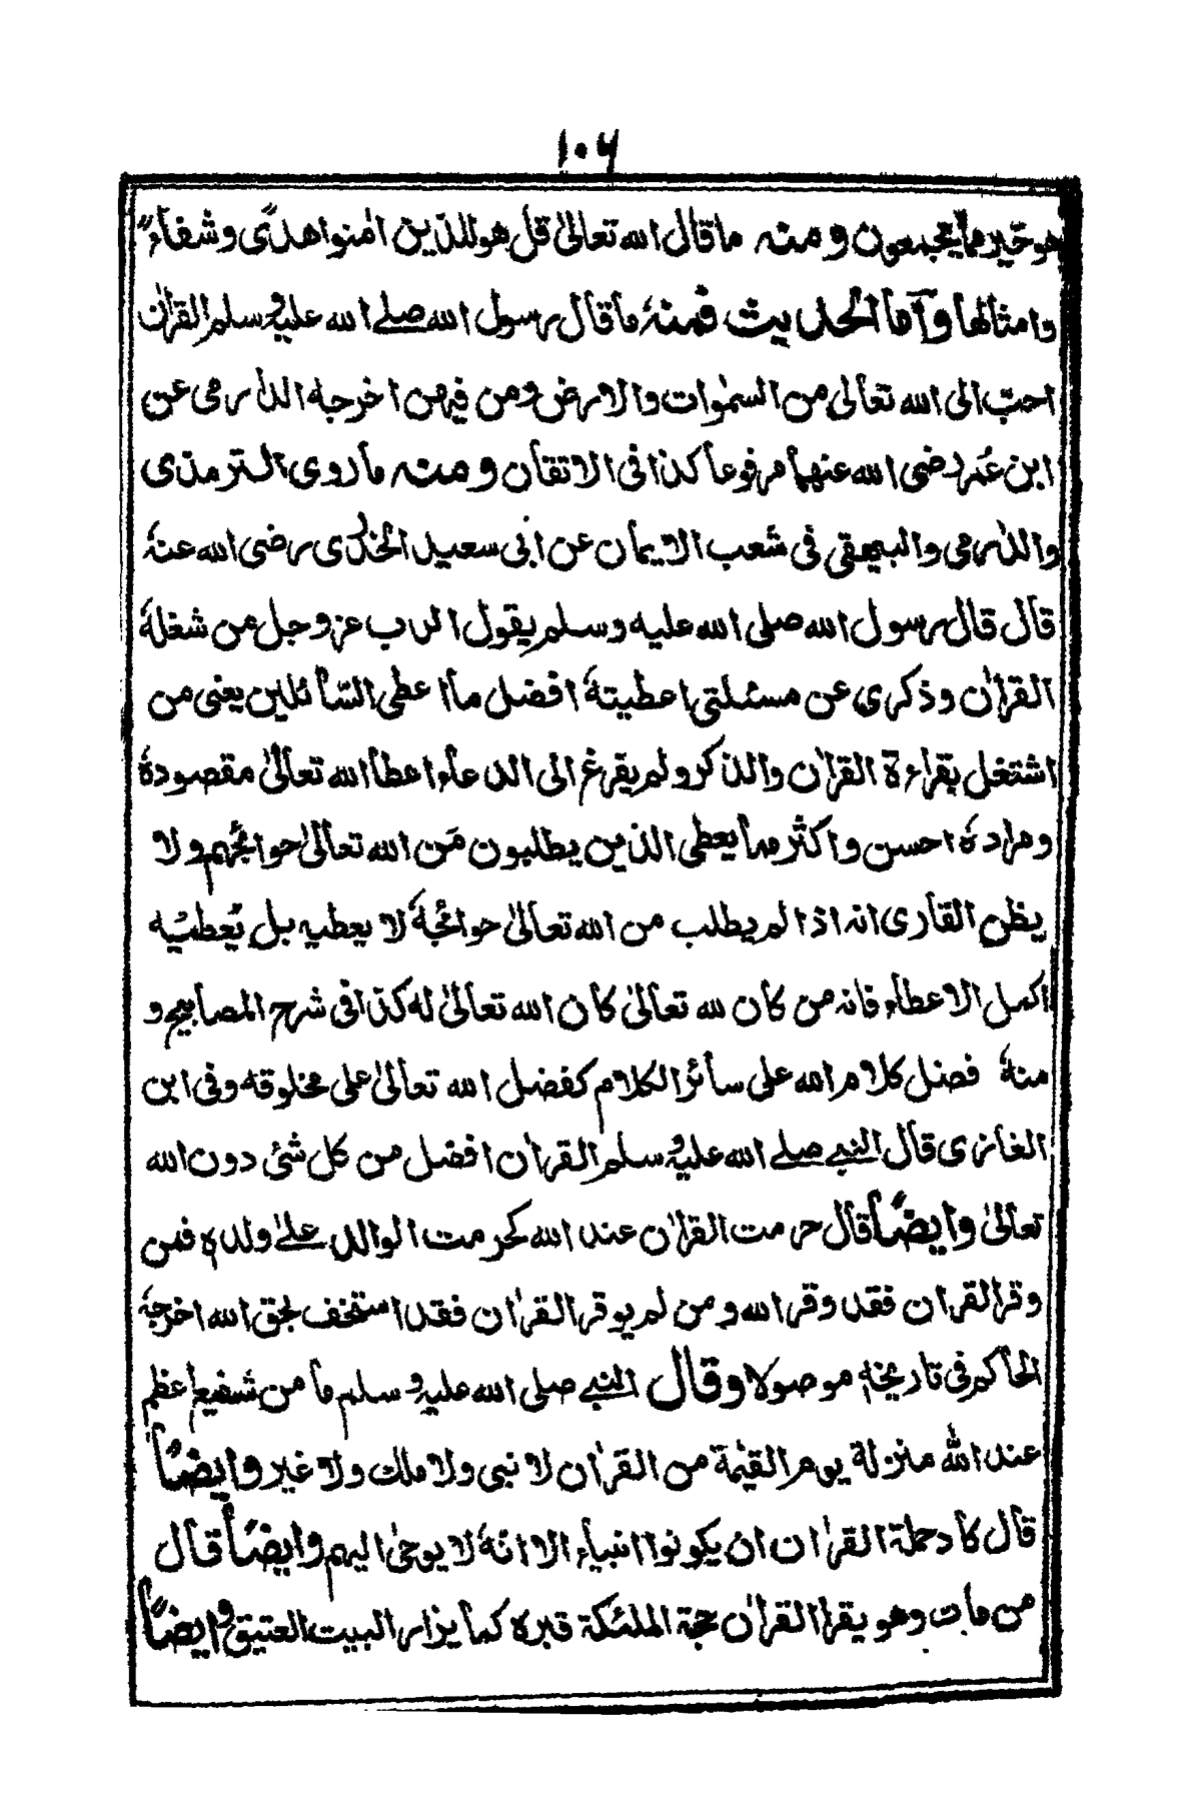 ۱۰۶
هو خير مما يجمعون ومنه ما قال الله تعالیٰ قل هو للذين اٰمنوا هدًى وشفاءً
وامثالها وآما الحديث فمنهٗ ما قال رسول الله صلے الله عليه وسلم القراٰن
احبّ الى الله تعالى من السمٰوات والارض ومن فيهن اخرجه الدارمى عن
ابن عمر رضى الله عنهما مرفوعا كذا فى الاتقان ومنه ما روى الترمذى
والدارمى والبيهقى فى شعب الايمان عن ابى سعيد الخدرى رضى الله عنهٗ
قال قال رسول الله صلى الله عليه وسلم يقول الرب عز وجل من شغلهٗ
القراٰن وذكرى عن مسئلتى اعطيتهٗ افضل ما اعطى السّائلين يعنى من
اشتغل بقراءة القراٰن والذكر ولم يفرغ الى الدعاء اعطا الله تعالیٰ مقصودهٗ
ومرادهٗ احسن واكثر مما يعطى الذين يطلبون مَن الله تعالیٰ حوائجهم ولا
يظن القارى انه اذا لم يطلب من الله تعالیٰ حوائجهٗ لا يعطيه بل يُعطيه
اكمل الاعطاء فانه من كان لله تعالیٰ كان الله تعالیٰ له كذا فى شرح المصابيح و
منهٗ فضل كلام الله على سائر الكلام كفضل الله تعالیٰ على مخلوقه وفى ابن
الغازى قال النبے صلے الله عليه وسلم القراٰن افضل من كل شئ دون الله
تعالیٰ وايضًا قال حرمت القراٰن عند الله كحرمت الوالد علےٰ ولده فمن
وقر القراٰن فقد وقر الله ومن لم يوقر القراٰن فقد استخف بحق الله اخرجهٗ
الحاكم فى تاريخه موصولا وقال النبے صلى الله عليه وسلم ما من شفيع اعظم
عند الله منزلة يوم القيٰمة من القراٰن لا نبى ولا ملك ولا غير وايضًا
قال كاد حملة القراٰن ان يكونوا انبياء الا انهٗ لا يوحیٰ اليهم وايضًا قال
من مات وهو يقرا القراٰن حجة الملئكة قبره كما يزار البيت العتيق وايضًا